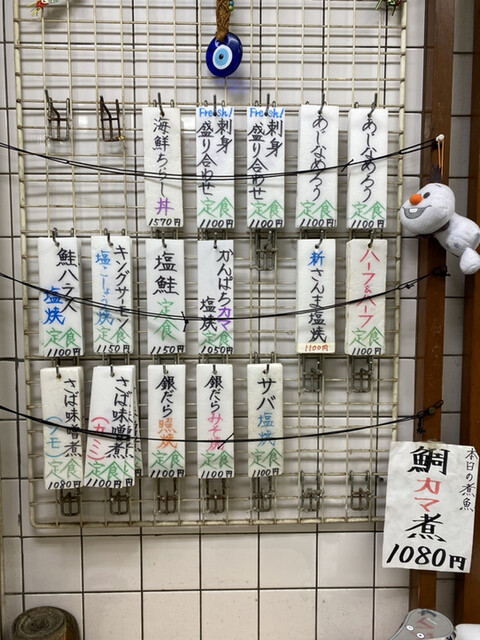 あじなめろう
定食
1100円
あじなめろう
定食
1100円
Fresh!
刺身
盛り合わせ
定食
1100円
Fresh!
刺身
盛り合わせ
定食
1100円
海鮮ちらし丼
1570円
ハーフ&ハーフ
定食
1100円
新さんま塩焼
1100円
かんぱちカマ
塩焼
定食
1050円
塩鮭
定食
1150円
キングサーモン
塩こしょう焼
定食
1150円
鮭ハラス
塩焼
定食
1100円
サバ塩焼
定食
1100円
銀だらみそ焼
定食
1100円
銀だら照焼
定食
1100円
さば味噌煮
(カミ)
定食
1100円
さば味噌煮
(シモ)
定食
1080円
本日の煮魚
鯛カマ煮
1080円